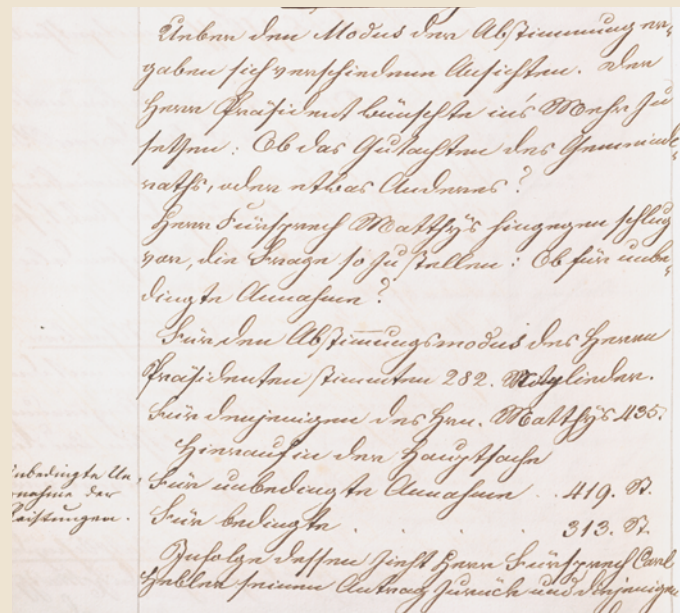 Ueber den Modus der Abstimmung er-
gaben sich verschiedene Ansichten. Der
Herr Präsident wünschte in's Mehr zu
setzen: Ob das Gutachten des Gemeinde-
raths, oder etwas Anderes?
Herr Fürsprech Matthÿs hingegen schlug
vor, die Frage so zu stellen: Ob für unbe-
dingte Annahme?
Für den Abstimmungsmodus des Herrn
Präsidenten stimmten 282. Mitglieder.
Für denjenigen des Hrn. Matthÿs 435.
Hierauf in der Hauptsache
Unbedingte An-
nahme der
Leistungen.
Für unbedingte Annahme . . 419. St.
Für bedingte . . . . 313. St.
Zufolge dessen zieht Herr Fürsprech Carl
Hebler seinen Antrag zurück und diejenigen